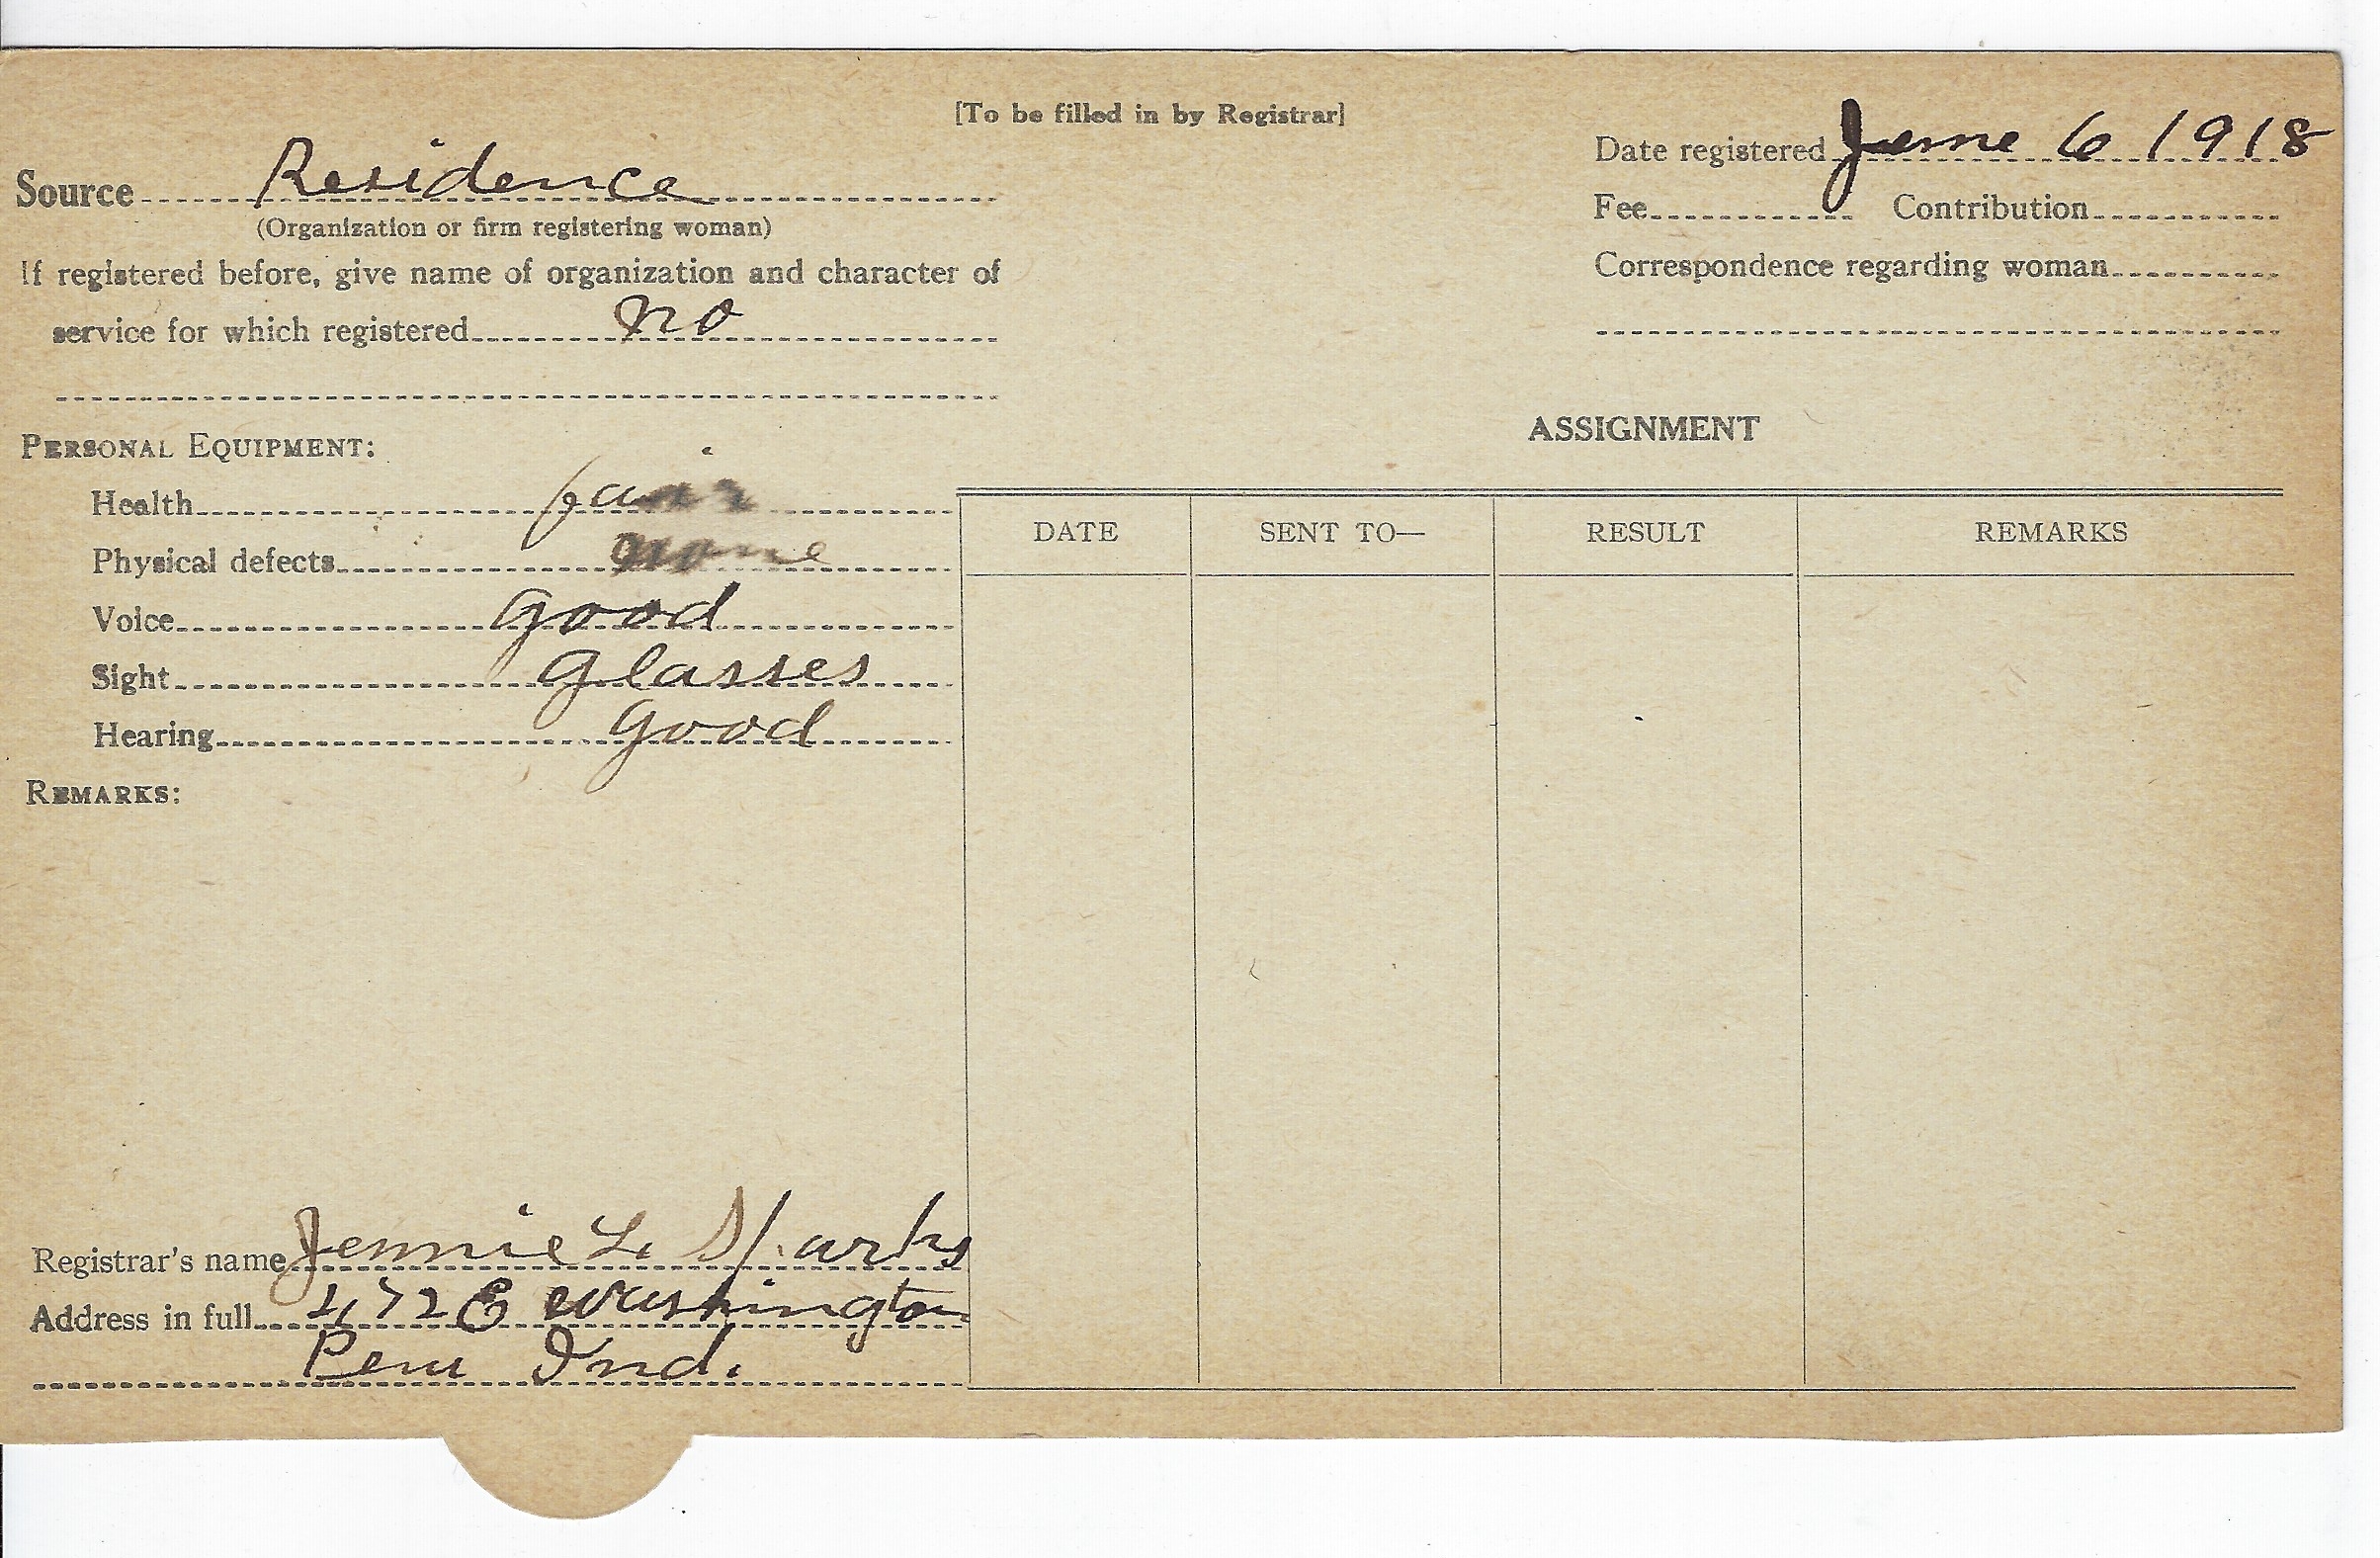 [To be filled in by Registrar]
Source Residence
(Organization or firm registering woman)
If registered before, give name of organization and character of
service for which registered no
Date registered June 6 1918
Fee Contribution
Correspondence regarding woman
PERSONAL EQUIPMENT:
Health fair
Physical defects none
Voice good
Sight glasses
Hearing good
REMARKS:
ASSIGNMENT
DATE SENT TO— RESULT REMARKS
Registrar's name Jennie L. Sparks
Address in full 472 E Washington
Peru Ind.